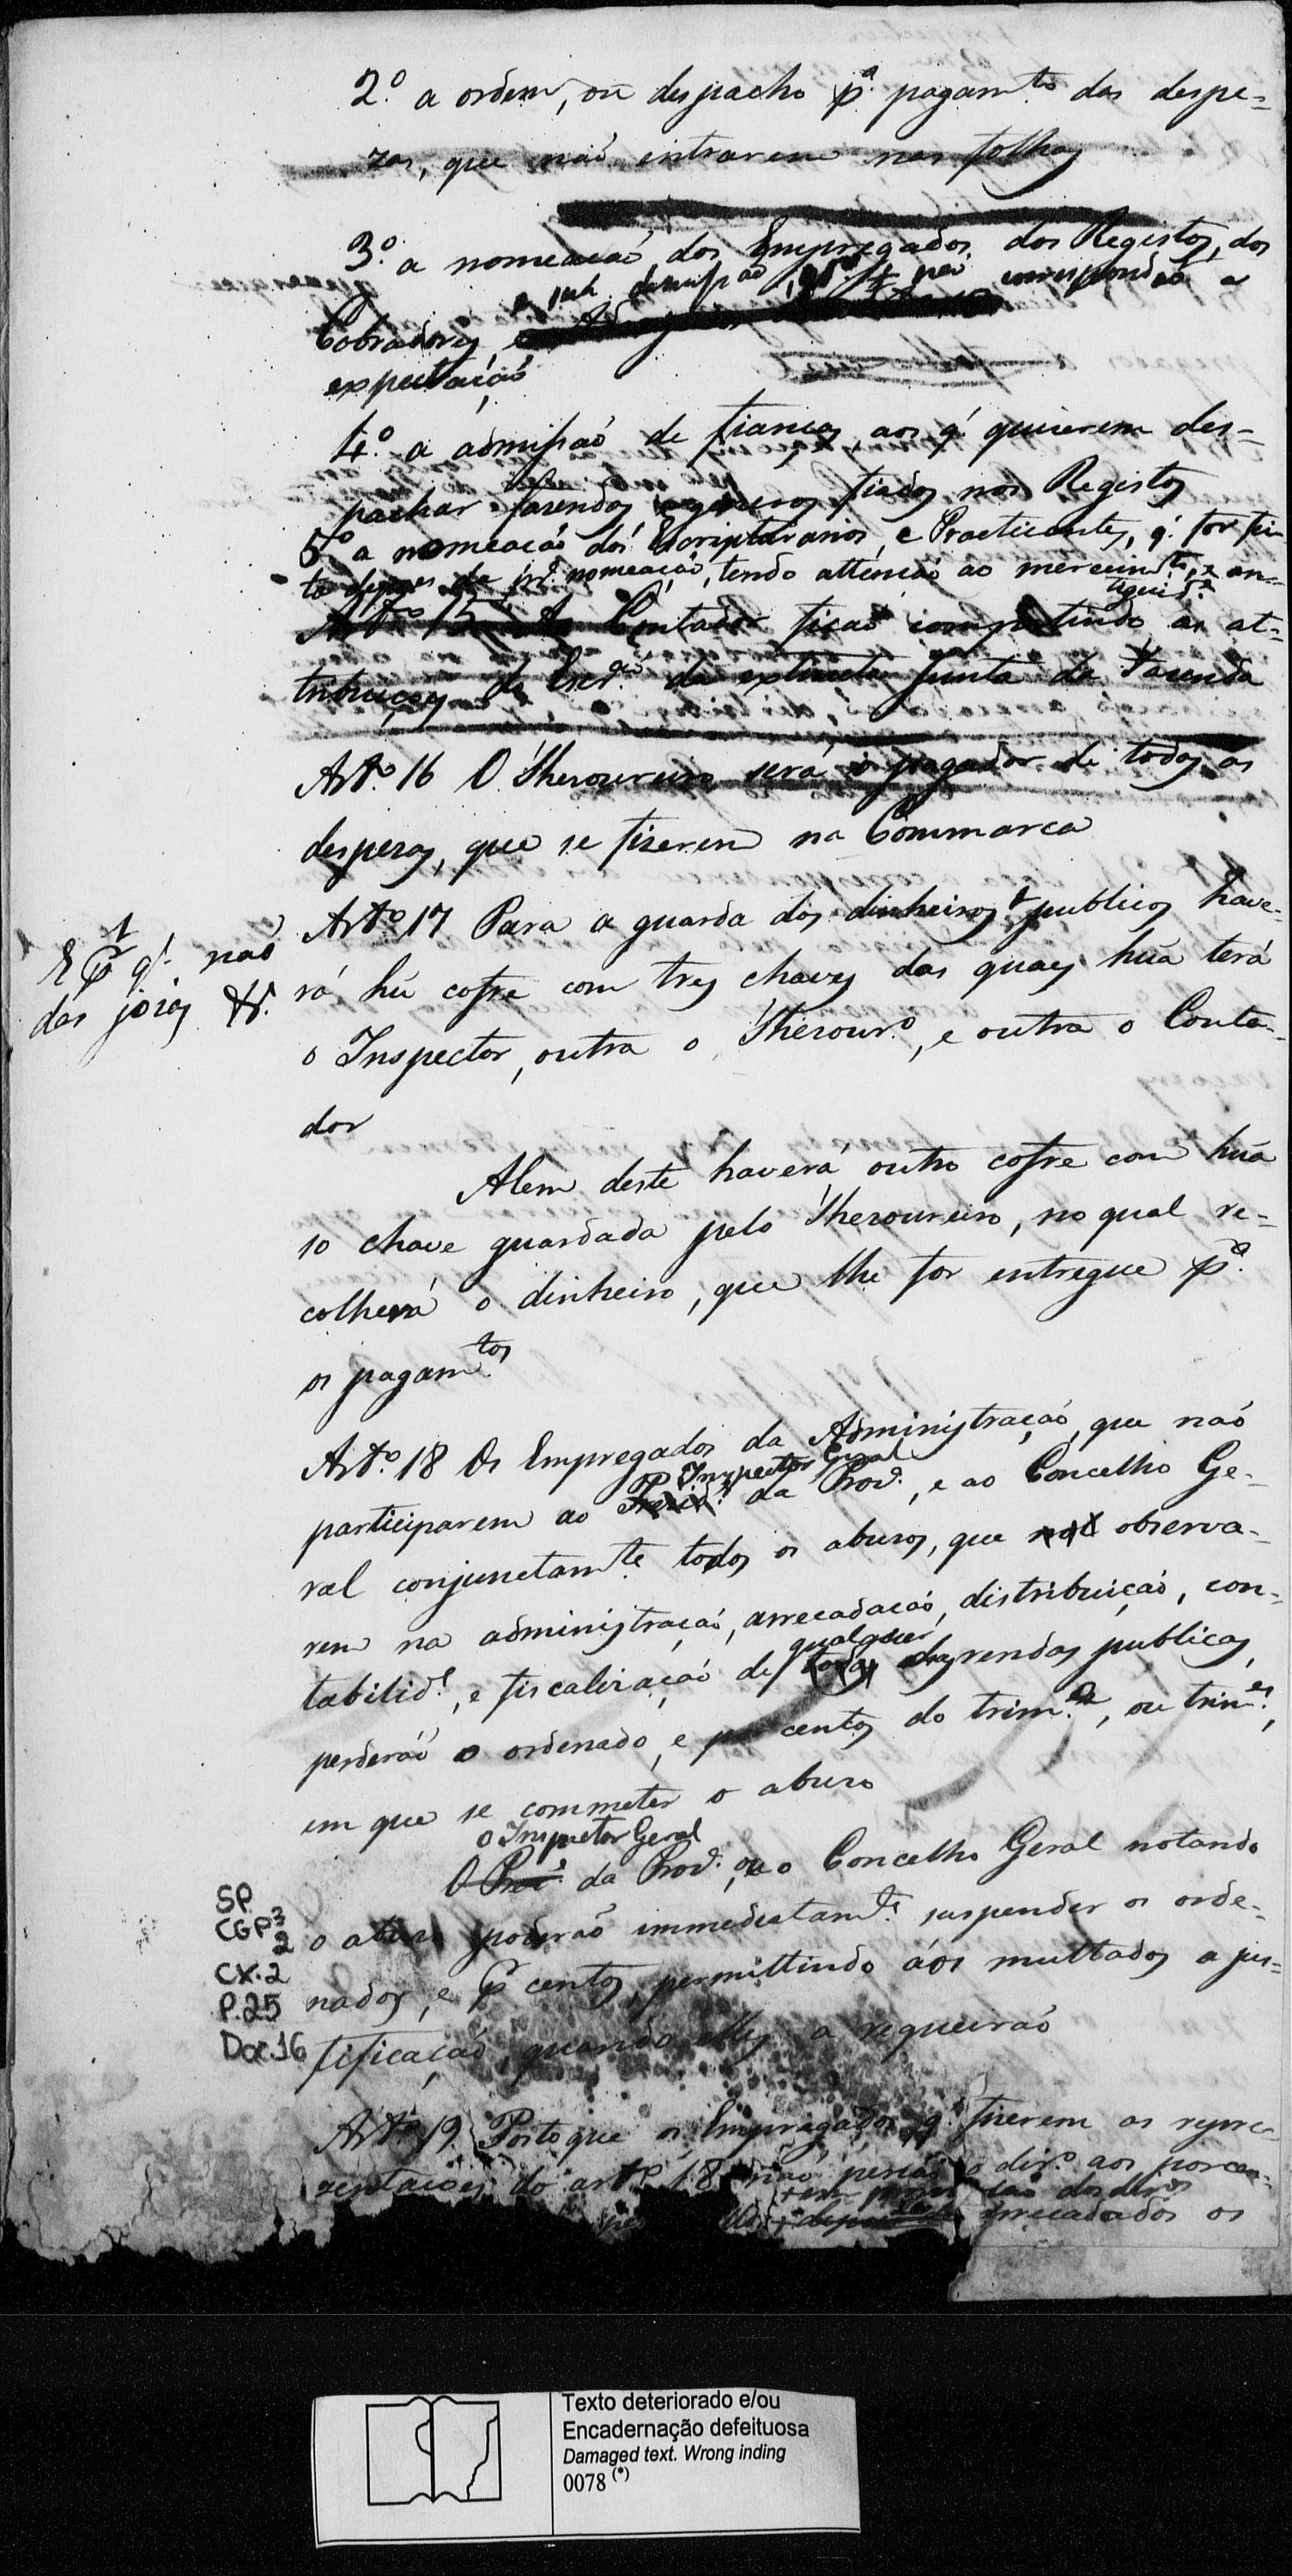 2.º a ordem, ou despacho p.ª pagam.to das despe-
zas, que naõ entrarem nas folhas
3.º a nomeaçaõ dos Empregados dos Registos, dos
e sua demissaõ, qd.º não corresponderem a
Cobradores,
expectaçaõ
4.º a admissaõ de fianças, aos q' quizerem des-
pachar fazendas e generos fiados nos Registos
5.º a nomeaçaõ dos Escripturarios, e Practicantes, q' for fei-
ta depois da pr.ª nomeaçaõ, tendo attençaõ ao merecim.to, e an-
tiguid.e
Art.º 15 Ao Contador ficaõ competindo as at-
tribuiçoes de Escr.am da extincta Junta da Fazenda
Art.º 16 O Thesoureiro será o pagador de todas as
despezas, que se fizerem na Commarca
Art.º 17 Para a guarda dos dinheiros publicos have-
rá hũ cofre com tres chaves das quaes hũa terá
o Inspector, outra o Thesour.º, e outra o Conta-
dor
E p q' naõ
das joias &.
Alem deste haverá outro cofre com hũa
so chave guardada pelo Thesoureiro, no qual re-
colherá o dinheiro, que lhe for entregue p.ª
os pagam.tos
Art.º 18 Os Empregados da Administraçaõ, que naõ
Inspector Geral
participarem ao Presid.e da Prov.ª, e ao Concelho Ge-
ral conjunctam.te todos os abusos, que observa-
rem na administraçaõ, arrecadaçaõ, distribuiçaõ, con-
qualquer
tabilid.e, e fiscalizaçaõ de todas as rendas publicas,
perderaõ o ordenado, e por centos do trim.e, ou trim.es,
em que se commeter o abuso
o Inspetor Geral
O Prez.e da Prov.ª, ou o Concelho Geral notando
o abuso poderaõ immediatam.te suspender os orde-
nados, e p centos, permittindo áos multados a jus-
tificaçaõ, quando elles a requeiraõ
SP.
CGP3
2
CX.2
P.25
Doc.16
Art.º 19. Postoque os Empregados, q' fizerem as repre-
zentaçoes do art.º 18 naõ percaõ o dir.º aos porcen-
arrecadados os
Texto deteriorado e/ou
Encadernação defeituosa
Damaged text. Wrong inding
0078 (*)